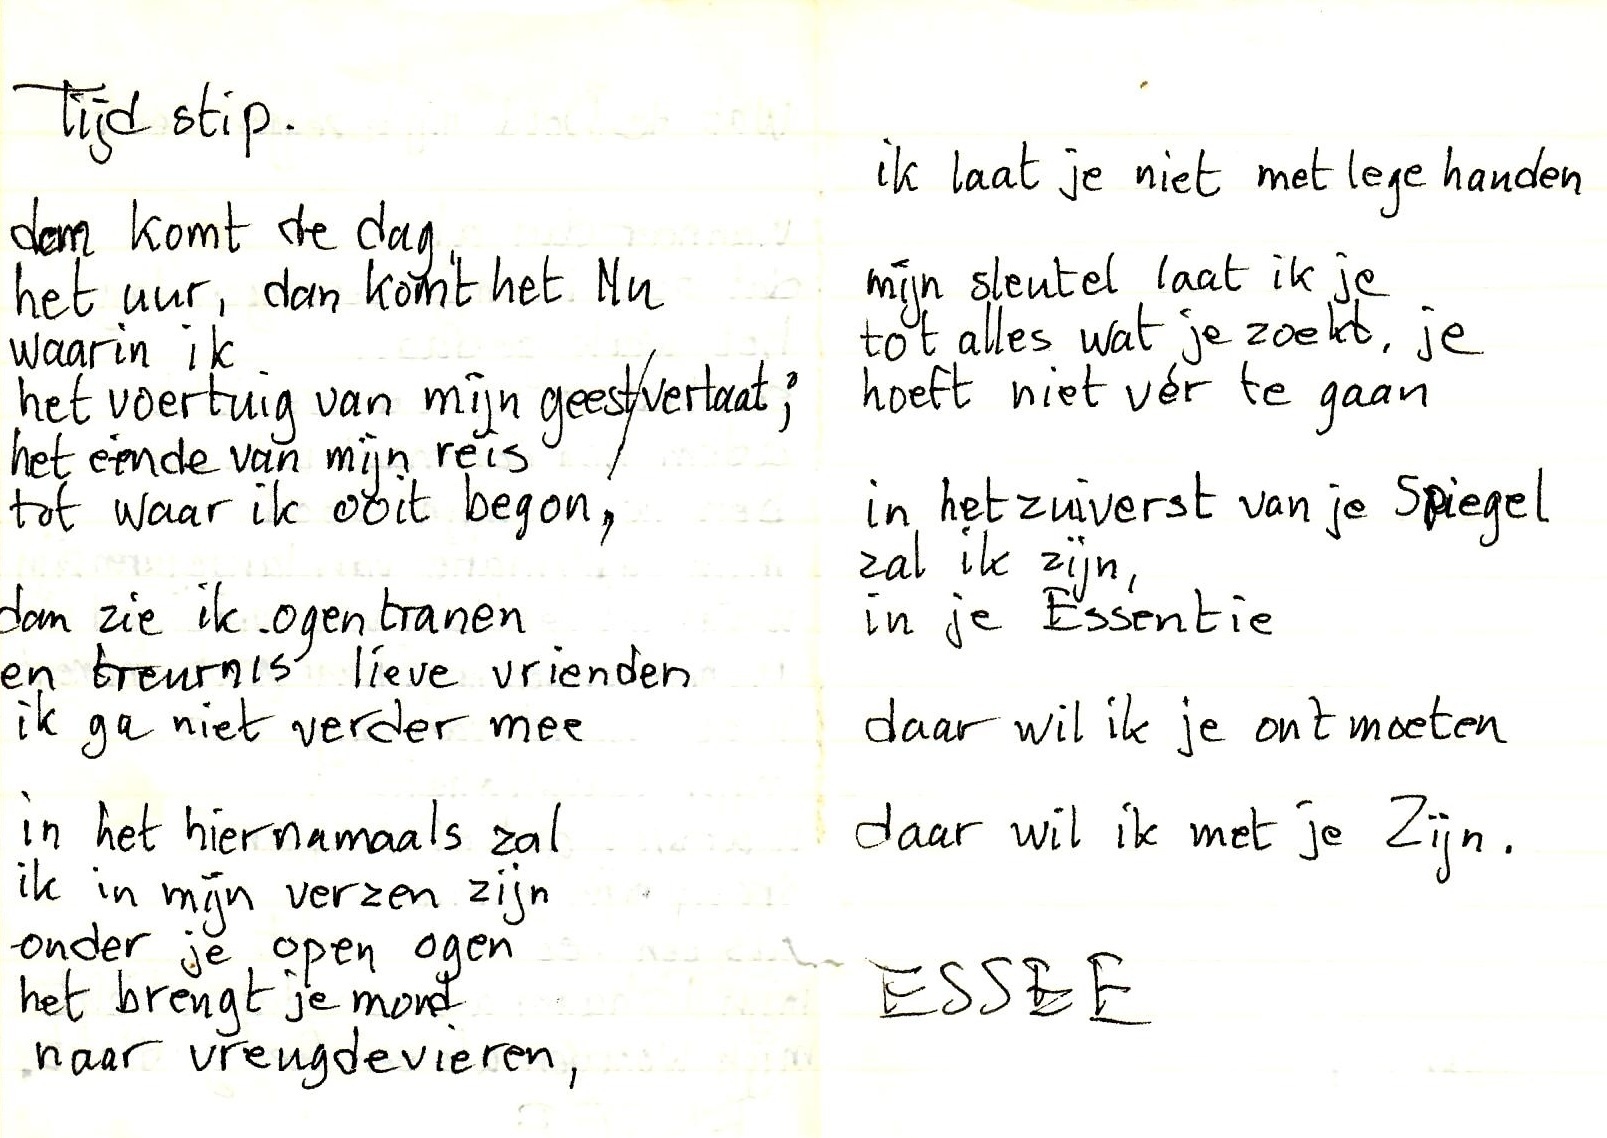 Tijd stip.
dan komt de dag,
het uur, dan komt het Nu
waarin ik
het voertuig van mijn geest/verlaat;
het einde van mijn reis
tot waar ik ooit begon,
dan zie ik ogentranen
en treurnis lieve vrienden
ik ga niet verder mee
in het hiernamaals zal
ik in mijn verzen zijn
onder je open ogen
het brengt je mond
naar vreugdevieren,
ik laat je niet met lege handen
mijn sleutel laat ik je
tot alles wat je zoekt, je
hoeft niet vér te gaan
in het zuiverst van je Spiegel
zal ik zijn,
in je Essentie
daar wil ik je ontmoeten
daar wil ik met je Zijn.
ESSEE